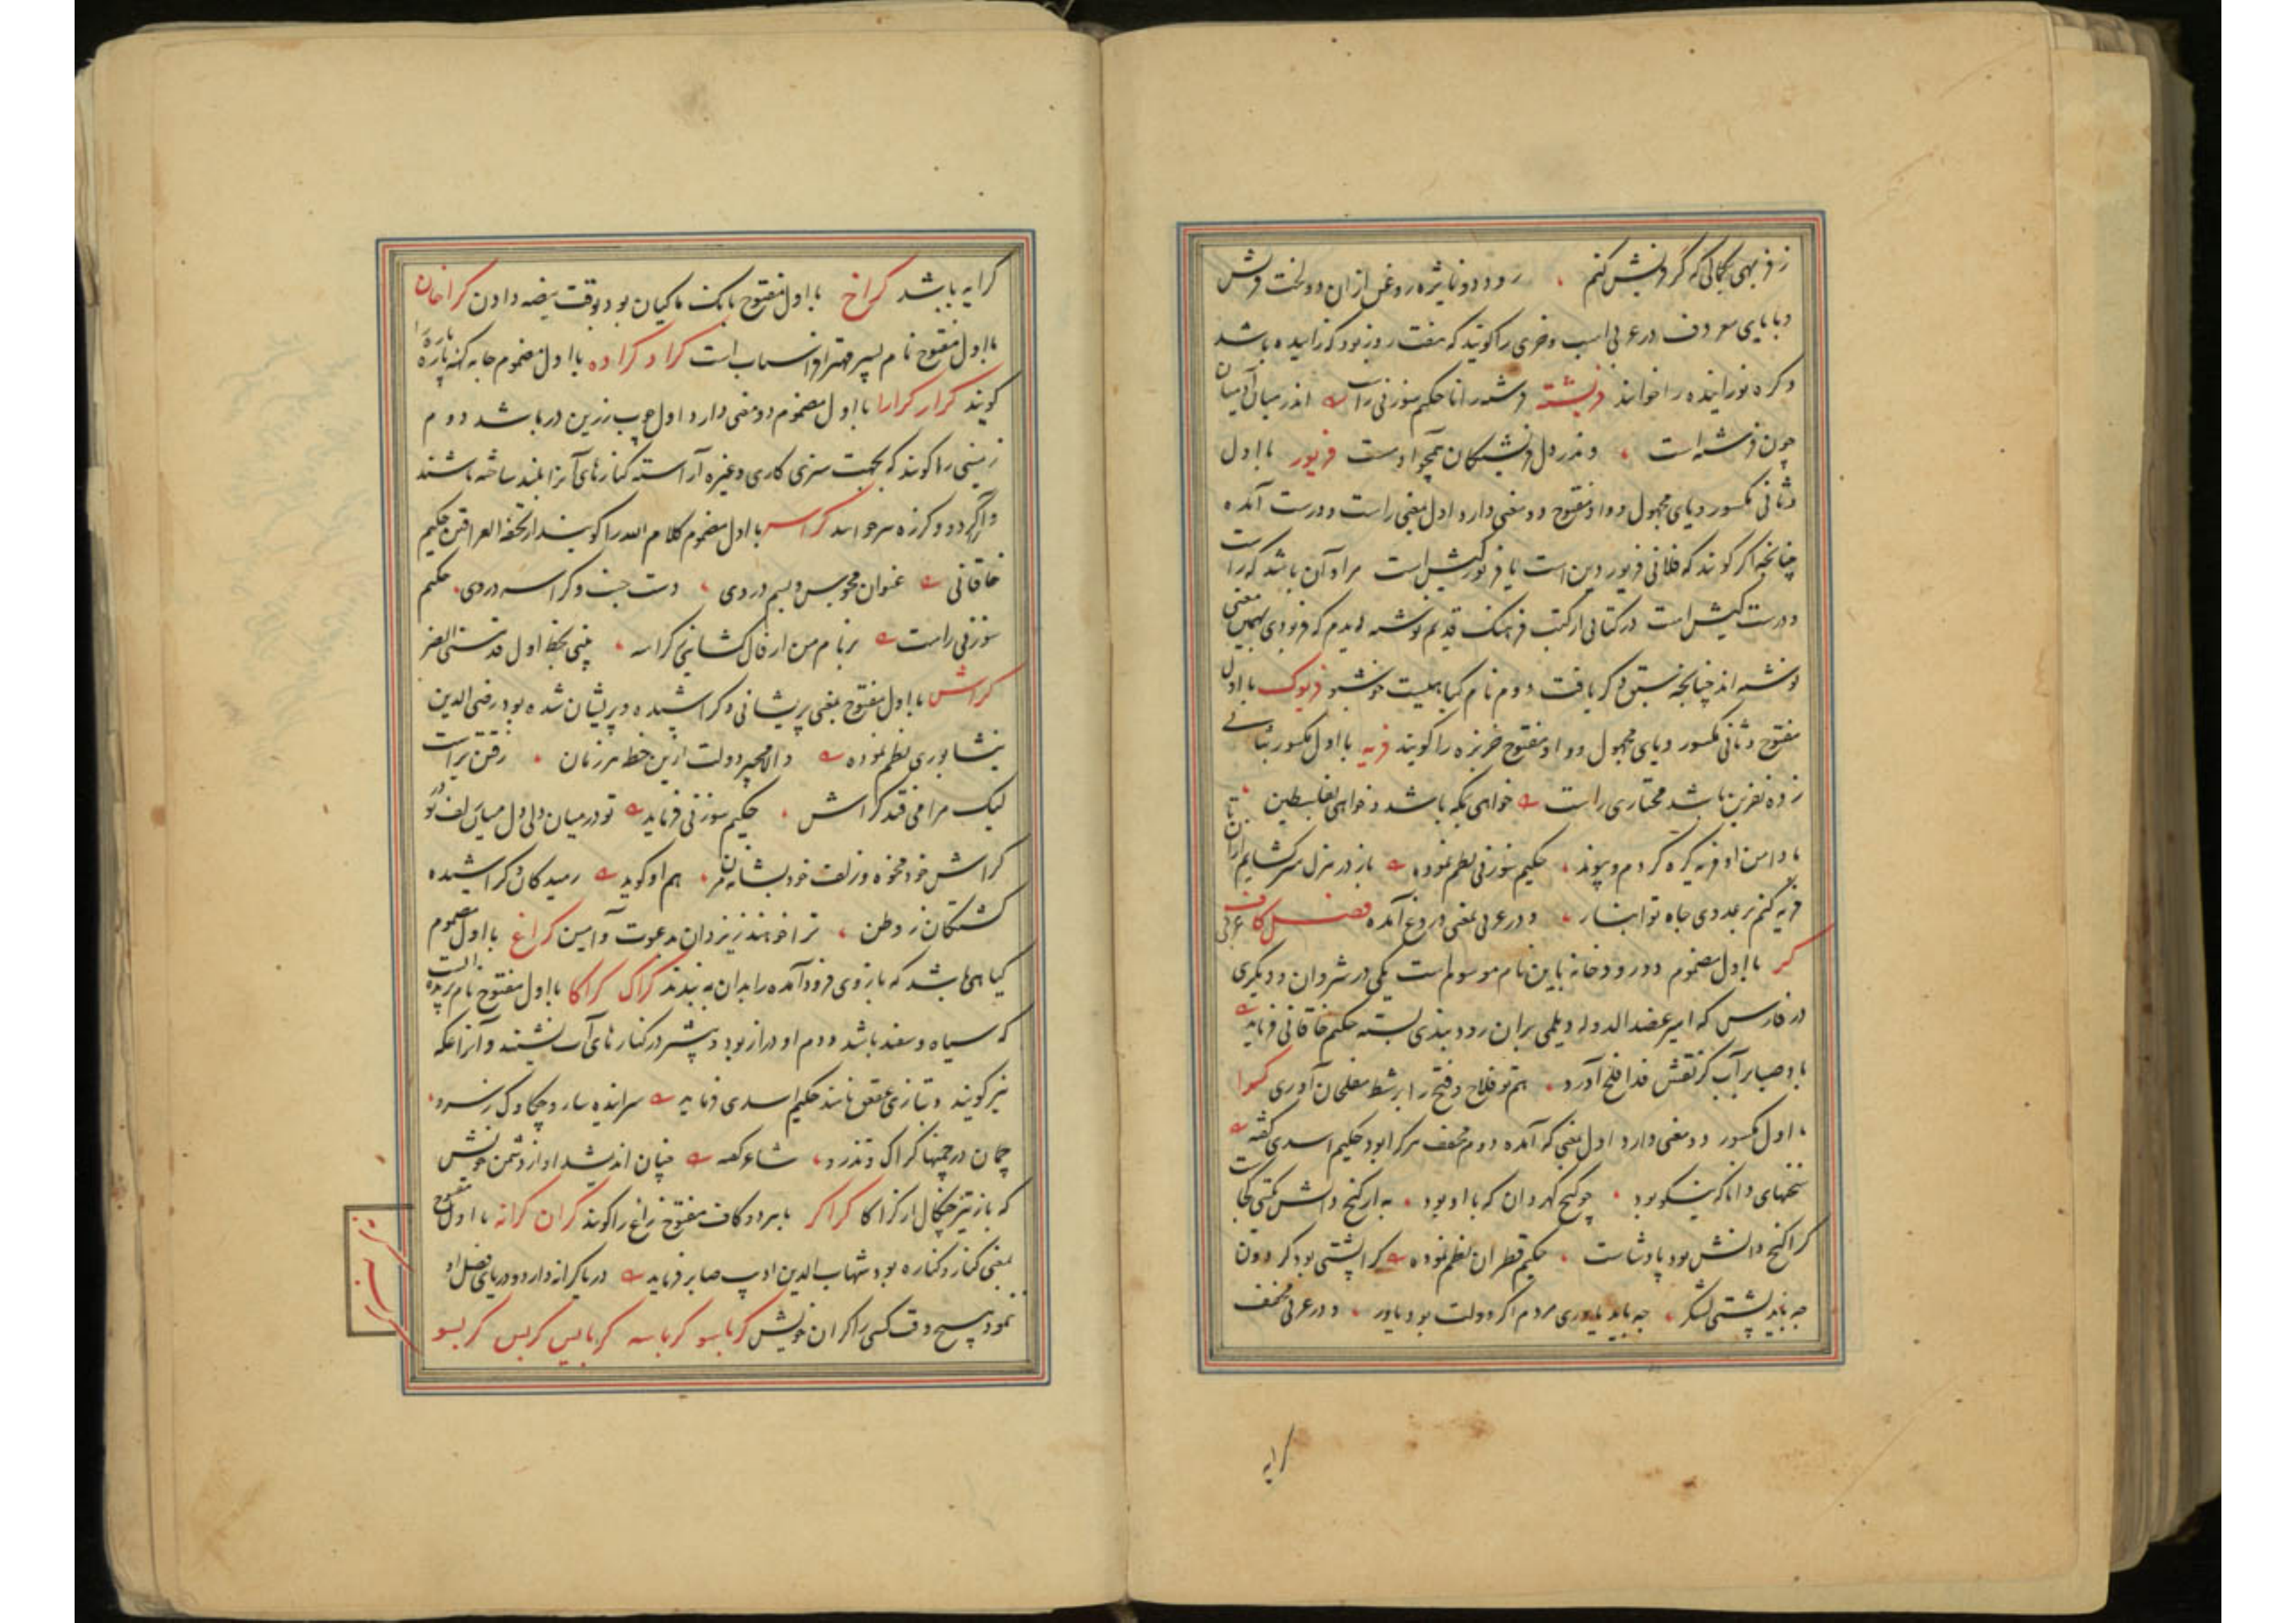 ز فربهی بجائی که گر دنبش کنم ، رود دو نایژه روغن ازان دو لخت فرش
و با یای معروف در عربی اسب و خری را گویند که هفت روز بود که زاییده باشد
و کره نوزاینده را خوانند فریشته فرشته را نامند حکیم سوزنی راست اندر میان آدمیان
چون فرشته است ، وندر دل فرشتگان همچو اوست فریور با اول
و ثانی مکسور و یای مجهول و واو مفتوح دو معنی دارد اول بمعنی راست و درست آمده
چنانچه اگر گویند که فلانی فریور دین است یا فریور کیش است مراد آن باشد که راست
و درست کیش است در کتابی از کتب فرهنگ قدیم نوشته دیدم که فرودی بهمین معنی
نوشته اند چنانچه نبستن ذکر یافت دوم نام گیاهیست خوشبو فریوک با اول
مفتوح و ثانی مکسور و یای مجهول و واو مفتوح خربزه را گویند فریه با اول مکسور بثانی
زده نفرین باشد مختاری راست خواهی بمکه باشد و خواهی بفلسطین ،
با دامن او فریه گره کردم و پیوند ، حکیم سوزنی نظم نموده باز در هزل سر گشایم ازان تا
فریه کنم بر عدوی جاه تو ایثار ، و در عربی بمعنی دروغ آمده فصل کاف عربی
کر با اول مضموم دو رودخانه باین نام موسوم است یکی در شروان و دیگری
در فارس که امیر عضد الدوله دیلمی بران رود بندی بسته حکیم خاقانی فرماید
با و صبا بر آب کر نقش قد افلح آورد ، هم تو فلاح و فتح را بر شط مفلحان آوری کرا
با اول مکسور دو معنی دارد اول بمعنی که آمده دوم مخفف هر کرا بود حکیم اسدی گفته
سخنهای دانا که نیکو بود ، چو گنج گهر دان که با او بود ، به از گنج دانش بگیتی کجاست
کرا گنج دانش بود پادشاست ، حکیم قطران نظم نموده کرا پشتی بود گردون
چه باید پشتی لشکر ، چه باید یاوری مردم اگر دولت بود یاور ، و در عربی مخفف
کرایه
کرایه باشد کراخ با اول مفتوح بانگ ماکیان بود بوقت بیضه دادن کراخان
با اول مفتوح نام پسر مهتر افراسیاب است کراد کراده با اول مضموم جامه کهنه پاره پاره را
گویند کرار کرارا با اول مضموم دو معنی دارد اول چوب زرین در باشد دوم
زمینی را گویند که بجهت سبزی کاری و غیره آراسته کنارهای آنرا بلند ساخته باشند
و آنرا کردو و کرزه هم خوانند کراس با اول مضموم کلام الله را گویند از تحفة العراقین حکیم
خاقانی عنوان مجوس و بسم در وی ، دست جنب و کراسه در وی ، حکیم
سوزنی راست بر نام من ار فال گشایی ز کراسه ، بینی بخط اول قد مسنی الضر
کراش با اول مفتوح بمعنی پریشانی و کراشیده و پریشان شده بود رضی الدین
نیشابوری نظم نموده والا مجیر دولت ازین خطه هر زمان ، رفتن براست
لیک مرا می فتد کراش ، حکیم سوزنی فرماید تو در میان ولی دل میان زلف تو در
کراش خود مخوه و زلف خود بشانه مزن ، هم او گوید رمیدگان و کراشیده
گشتگان ز وطن ، ترا خوهند ز یزدان بدعوت و آمین کراغ با اول مضموم
گیاهی باشد که بازوی فرود آمده را بدان به بندند کراک کراکا با اول مفتوح نام پرنده ایست
که سیاه و سفید باشد و دم او دراز بود و بیشتر در کنارهای آب نشیند و آنرا عکه
نیز گویند و بتازی عقعق نامند حکیم اسدی فرماید سراینده سار و چکاوک ز سرو ،
چمان در چمنها کراک و تذرو ، شاعر گفته چنان اندیشد او از دشمن خویش
که باز تیز چنگال از کراکا کراکر با هر دو کاف مفتوح زاغ را گویند کران کرانه با اول مفتوح
بمعنی کنار و کناره بود شهاب الدین ادیب صابر فرماید دریا کرانه دارد و دریای فضل او
ننمود هیچ وقت کسی را کران خویش کرباسو کرباسه کربایس کربس کربسو